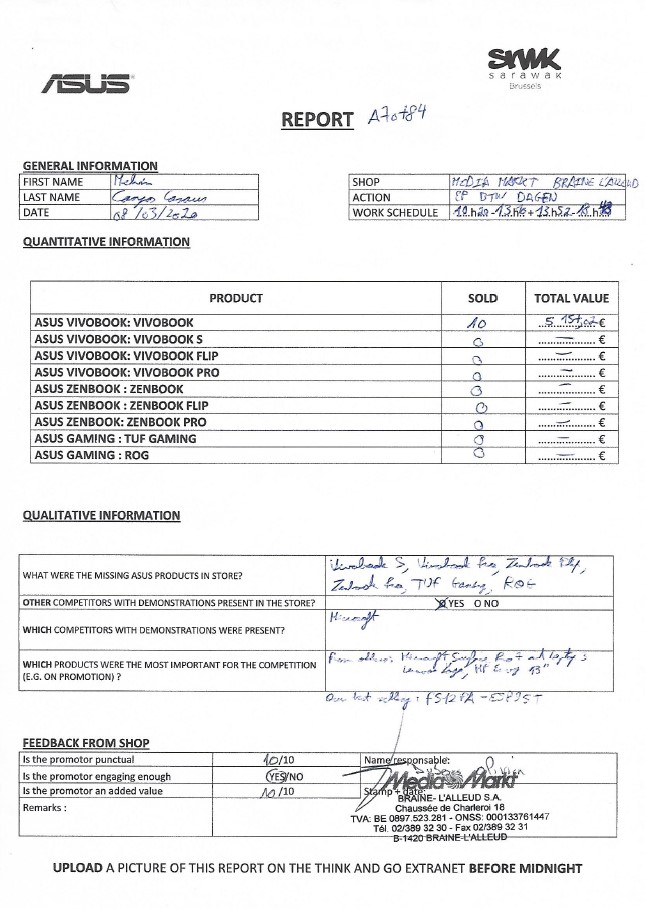 ASUS
SRWK
sarawak
Brussels
REPORT A70784
GENERAL INFORMATION
FIRST NAME
LAST NAME
DATE 08/03/2020
SHOP MEDIA MARKT BRAINE L'ALLEUD
ACTION EP BTW DAGEN
WORK SCHEDULE
QUANTITATIVE INFORMATION
PRODUCT SOLD TOTAL VALUE
ASUS VIVOBOOK: VIVOBOOK 10 €
ASUS VIVOBOOK: VIVOBOOK S 0 — €
ASUS VIVOBOOK: VIVOBOOK FLIP 0 — €
ASUS VIVOBOOK: VIVOBOOK PRO 0 — €
ASUS ZENBOOK : ZENBOOK 0 — €
ASUS ZENBOOK : ZENBOOK FLIP 0 — €
ASUS ZENBOOK: ZENBOOK PRO 0 — €
ASUS GAMING : TUF GAMING 0 — €
ASUS GAMING : ROG 0 €
QUALITATIVE INFORMATION
WHAT WERE THE MISSING ASUS PRODUCTS IN STORE? Vivobook S, Vivobook Pro, Zenbook Flip,
Zenbook Pro, TUF Gaming, ROG
OTHER COMPETITORS WITH DEMONSTRATIONS PRESENT IN THE STORE? YES O NO
WHICH COMPETITORS WITH DEMONSTRATIONS WERE PRESENT? Microsoft
WHICH PRODUCTS WERE THE MOST IMPORTANT FOR THE COMPETITION Microsoft Surface Pro 7
(E.G. ON PROMOTION) ? HP Envy 13"
Our best selling :
FEEDBACK FROM SHOP
Is the promotor punctual 10/10 Name responsable:
Is the promotor engaging enough YES/NO
Is the promotor an added value 10/10 Stamp + date:
Remarks :
Media Markt
BRAINE- L'ALLEUD S.A.
Chaussée de Charleroi 18
TVA: BE 0897.523.281 - ONSS: 000133761447
Tél. 02/389 32 30 - Fax 02/389 32 31
B-1420 BRAINE-L'ALLEUD
UPLOAD A PICTURE OF THIS REPORT ON THE THINK AND GO EXTRANET BEFORE MIDNIGHT